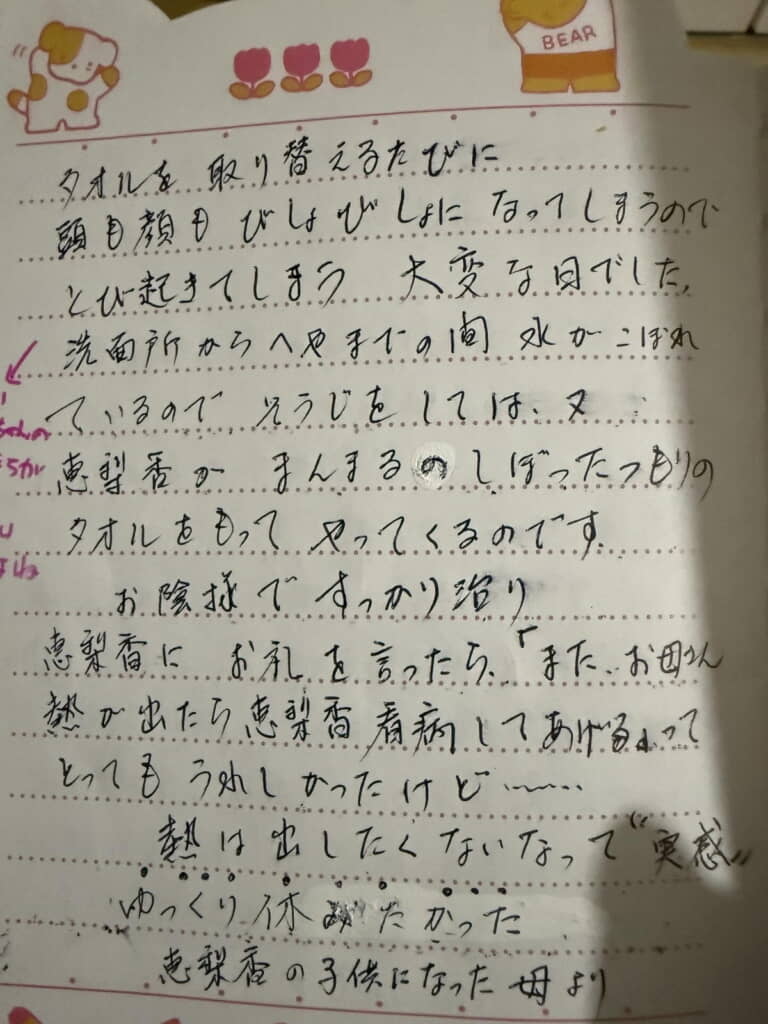 BEAR
タオルを 取り替えるたびに
頭も顔も びしょびしょに なってしまうので
とび起きてしまう 大変な日でした。
洗面所からへやまでの間 水がこぼれ
ているので、そうじをしては、又
恵梨香が まんまるのしぼったつもりの
タオルをもって やってくるのです。
お陰様で すっかり治り
恵梨香に お礼を言ったら、「また、お母さん
熱が出たら恵梨香看病してあげる」って
とっても うれしかったけど……
熱は出したくないなって“実感”
ゆっくり休みたかった
恵梨香の子供になった母より